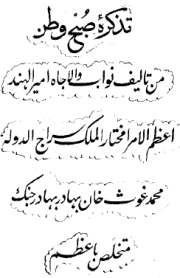 تذکرۂ صبح وطن
من تالیف نواب والاجاہ امیر الہند
اعظم الامرا مختار الملک سراج الدولہ
محمد غوث خان بہادر بہادر جنگ
متخلص باعظم